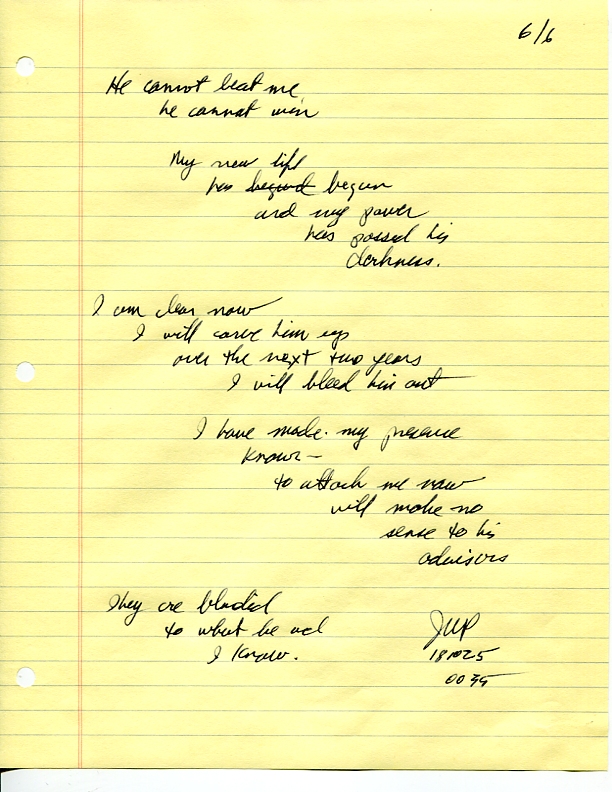 6/6
He cannot beat me
he cannot win
My new life
has begun
and my power
has passed his
darkness.
I am clear now
I will carve him up
over the next two years
I will bleed him out
I have made my presence
known—
to attack me now
will make no
sense to his
advisors
They are blinded
to what he and
I know.
JWP
181025
0035